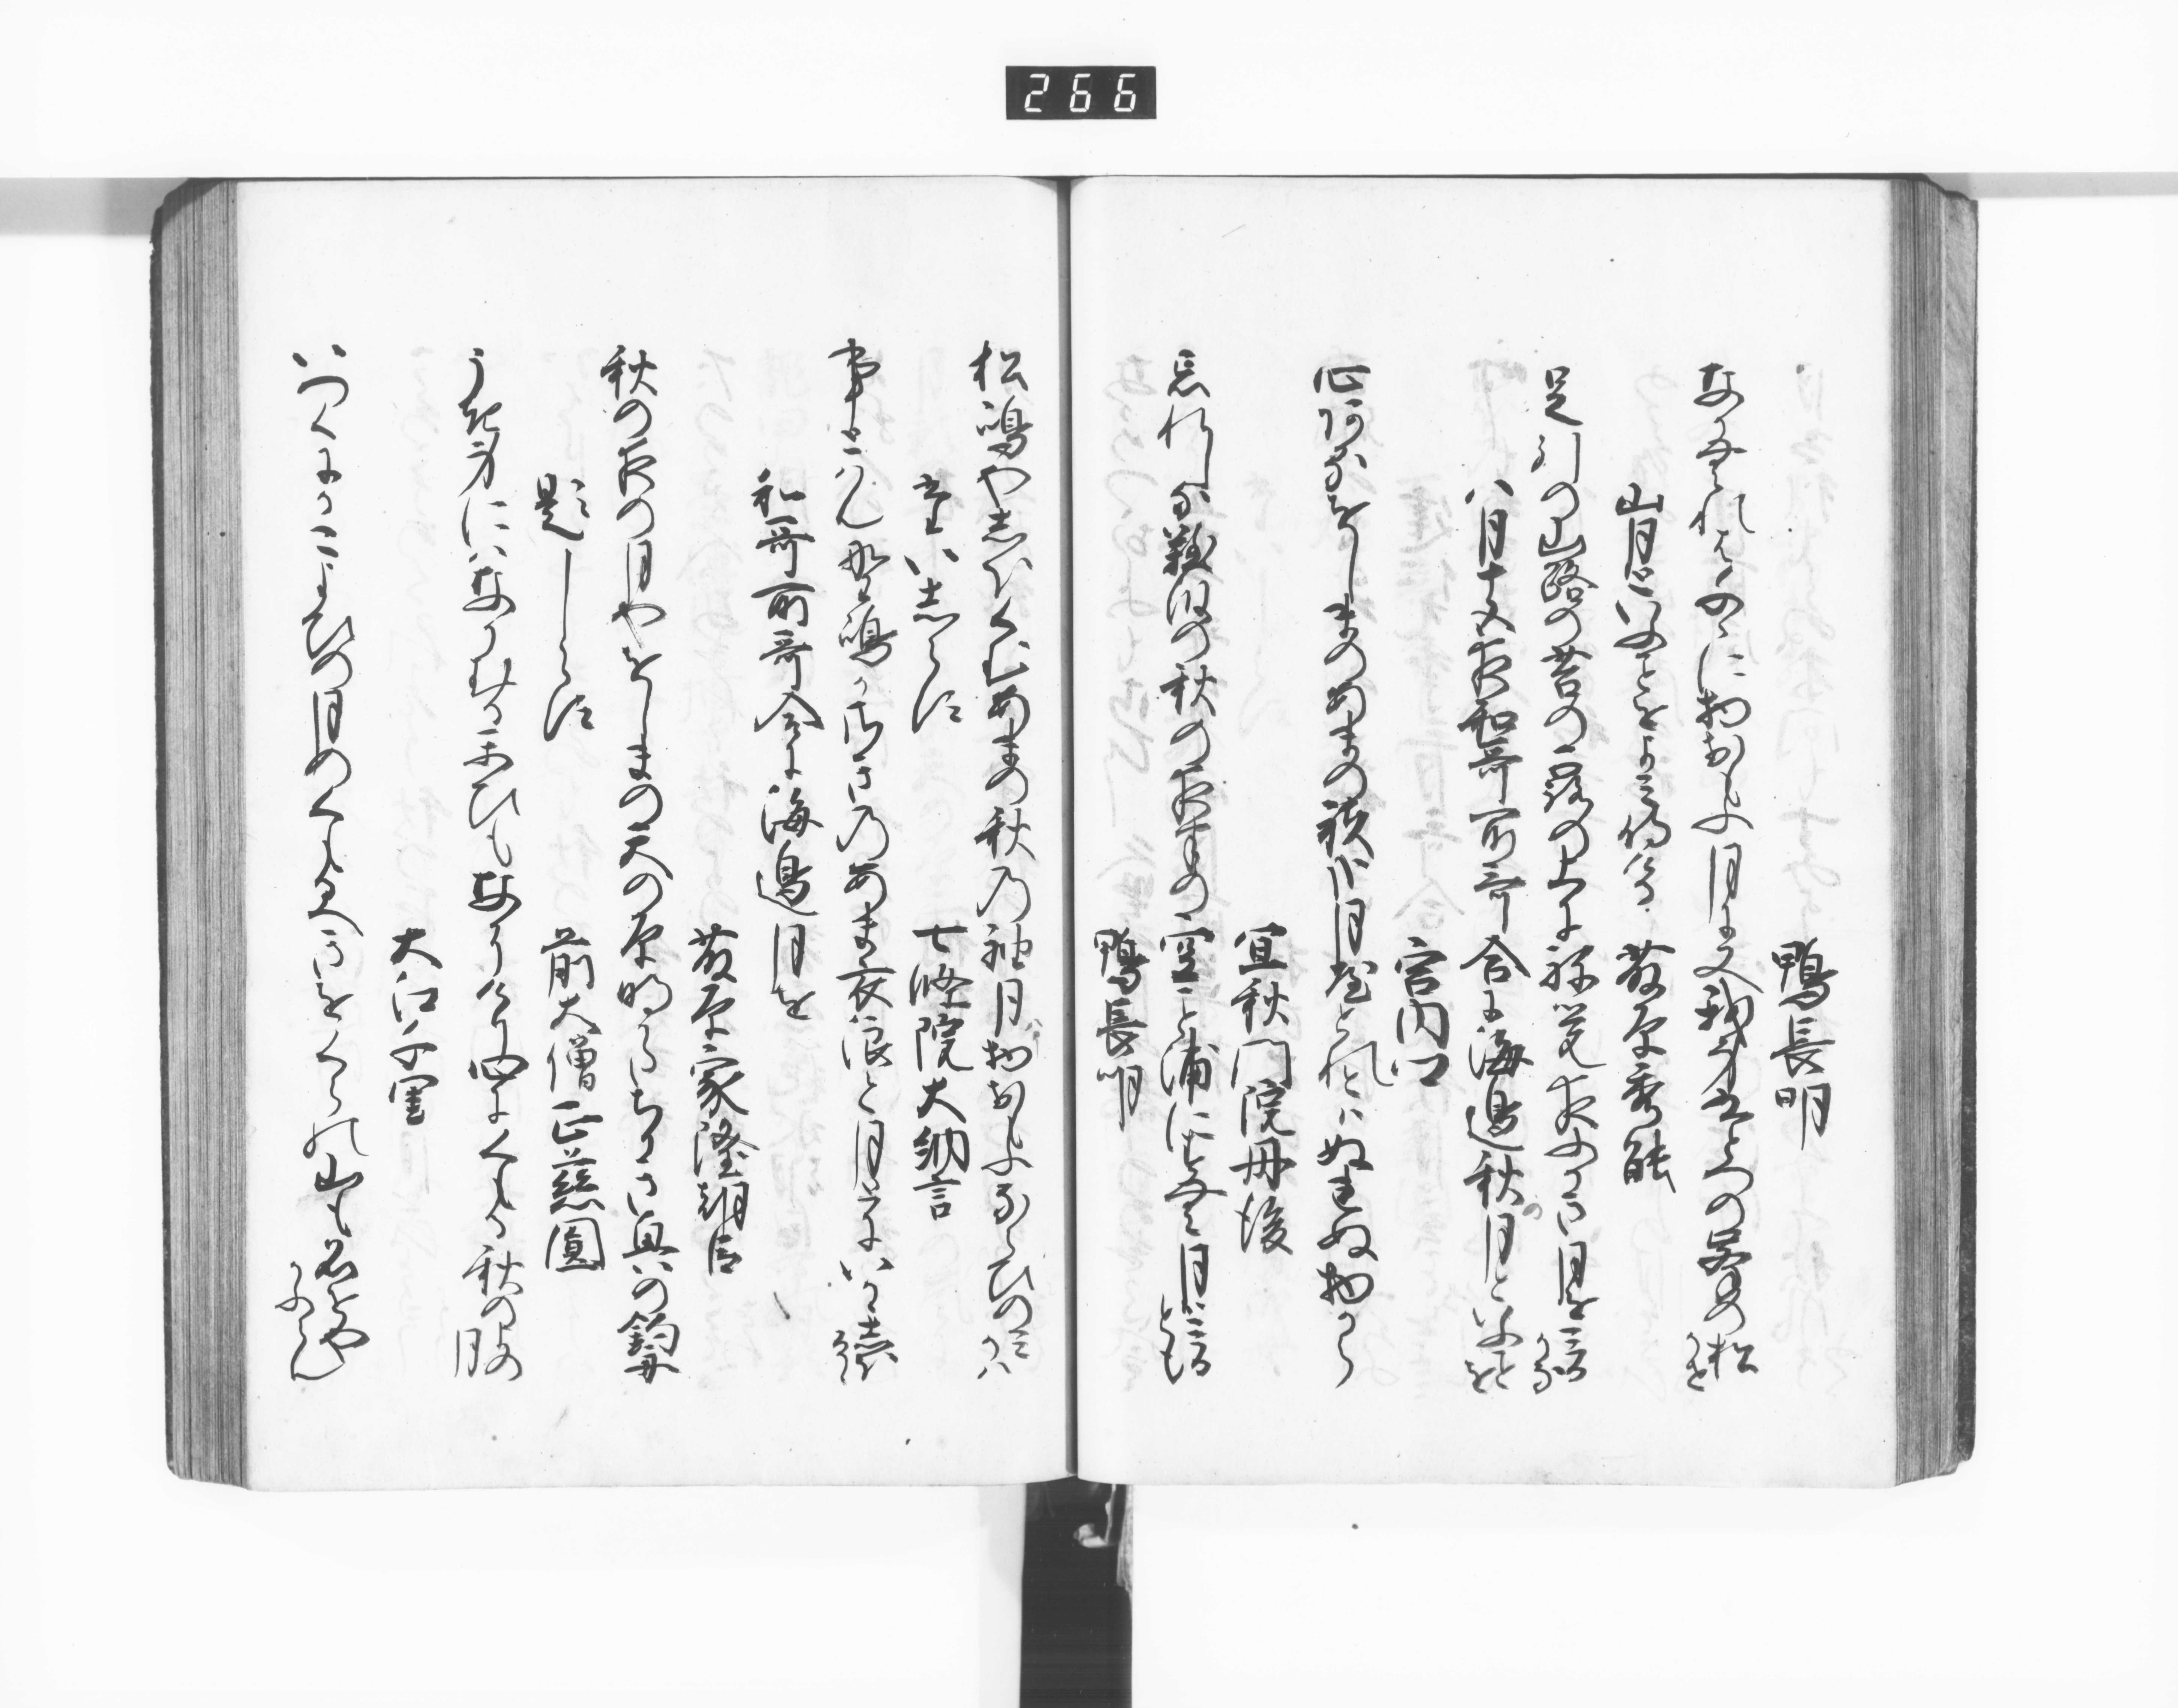 266
鴨長明
なかむれはちゝに物おもふ月に又我身立とつの峯の松かせ
山月といふことをよみ侍ける　藤原秀能
足引の山路の苔の露の上にね覚夜ふかき月をみるかな
八月十五夜和哥所哥合に海邊秋月といふことを
宮内卿
心あるをしまのあまの袂かな月やとれとはぬれぬ物から
宜秋門院丹後
忘れしな難波の秋の夜半の空こと浦にすむ月はみるとも
鴨長明
松嶋やしほくむあまの秋の袖月は物おもふならひのみかは
題しらす　七條院大納言
事とはん野嶋かさきのあま衣浪と月とにいかゝしほるゝ
和哥所哥合に海邊月を
藤原家隆朝臣
秋の夜の月やをしまの天の原明かたちかき奥の釣舟
題しらす　前大僧正慈圓
うき身にはなかむるかひもなかりけり心にくもる秋の夜の月
大江千里
いつくにかこよひの月のくもるへきをくらの山も名をやかふらん